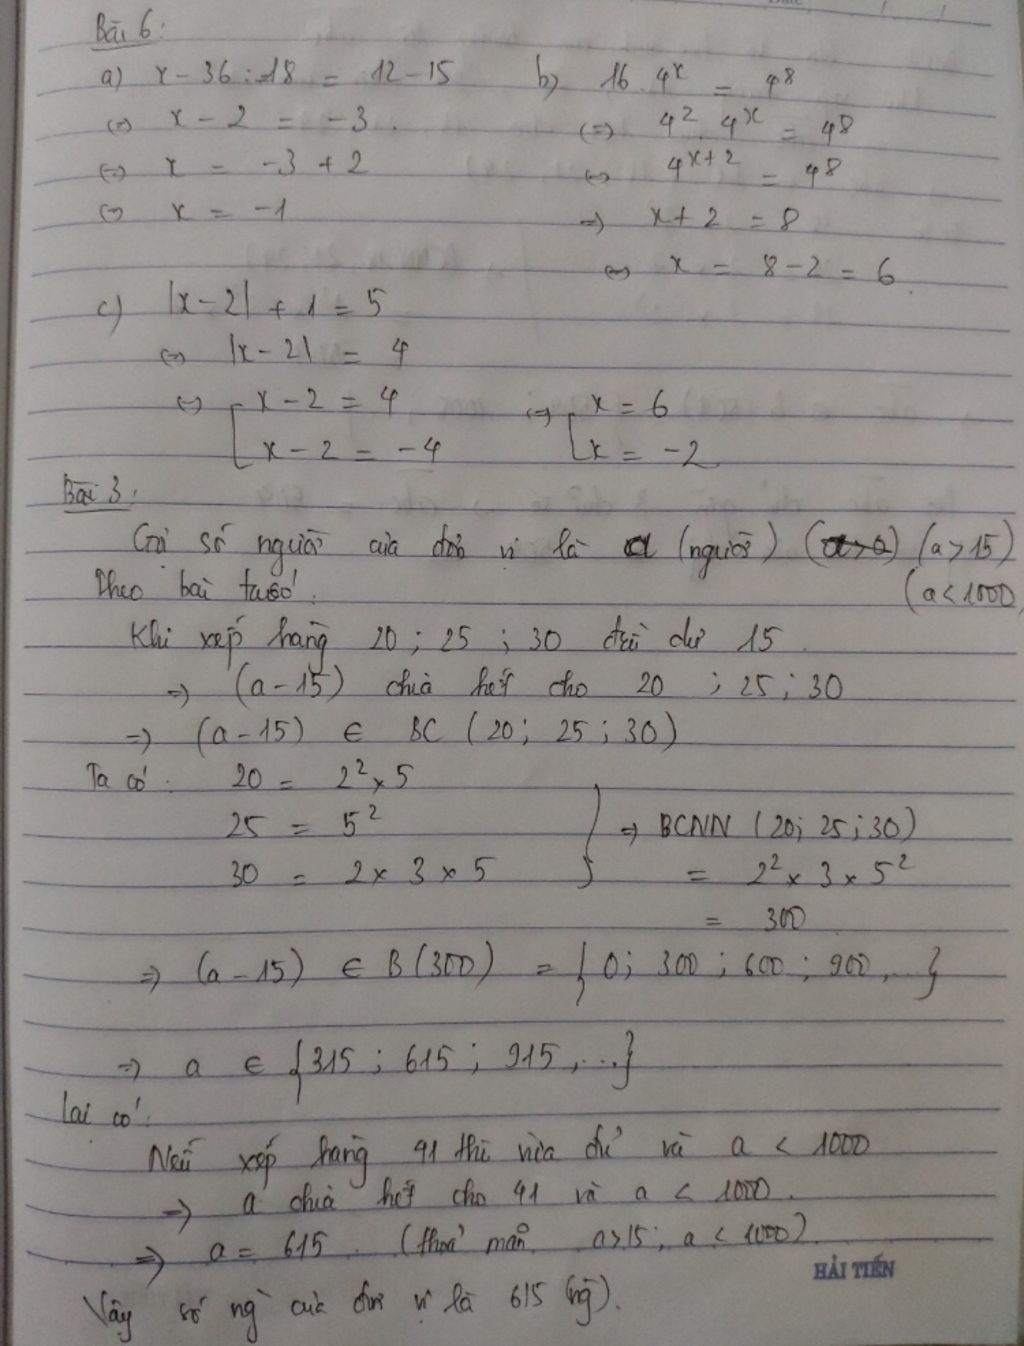 Bài 6:
a) x - 36 : 18 = 12 - 15
⇔ x - 2 = -3.
⇔ x = -3 + 2
⇔ x = -1
b) 16 . 4^x = 4^8
⇔ 4^2 . 4^x = 4^8
⇔ 4^{x+2} = 4^8
⇒ x + 2 = 8
⇔ x = 8 - 2 = 6.
c) |x - 2| + 1 = 5
⇔ |x - 2| = 4
⇔ [ x - 2 = 4 ⇔ [ x = 6
x - 2 = -4 x = -2
Bài 3:
Gọi số người của đơn vị là a (người) (a > 15)
Theo bài toán: (a < 1000)
Khi xếp hàng 20 ; 25 ; 30 đều dư 15.
⇒ (a - 15) chia hết cho 20 ; 25 ; 30
⇒ (a - 15) ∈ BC (20 ; 25 ; 30)
Ta có: 20 = 2^2 × 5
25 = 5^2
30 = 2 × 3 × 5
} ⇒ BCNN (20; 25; 30)
= 2^2 × 3 × 5^2
= 300
⇒ (a - 15) ∈ B(300) = { 0; 300 ; 600 ; 900, ... }
⇒ a ∈ {315 ; 615 ; 915, ...}
Lại có:
Nếu xếp hàng 41 thì vừa đủ và a < 1000
⇒ a chia hết cho 41 và a < 1000.
⇒ a = 615. (thoả mãn a > 15; a < 1000)
Vậy số ng` của đơn vị là 615 (ng`).
HẢI TIẾN